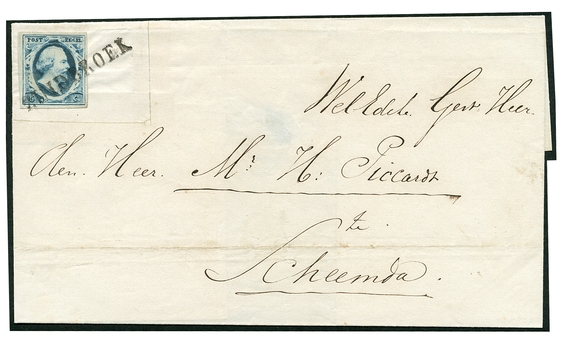 POST ZEGEL
WelEdele Gest. Heer.
Den. Heer. Mr. H: Piccardt
te
Scheemda.